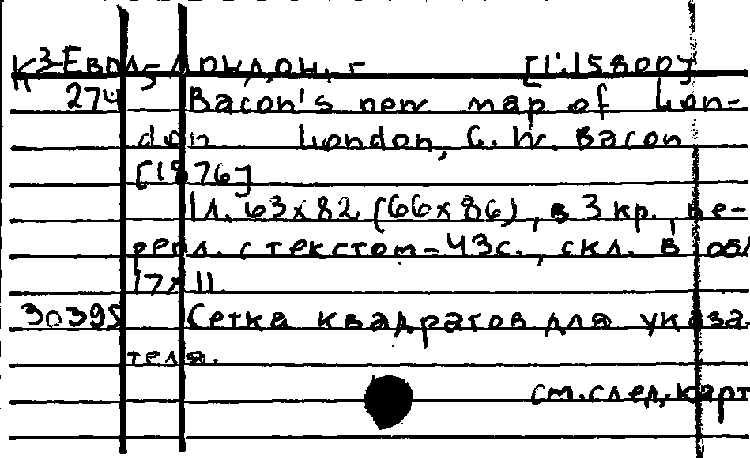 К3-Евр 5-Лондон, г [1:15800]
274 Bacon's new map of Lon-
don London, G. W. Bacon
[1876]
1 л. 63х82 (66х86), в 3 кр., пе-
репл. с текстом-43с., скл. в обл
17х11
30395 Сетка квадратов для указа
теля.
см. след. карт